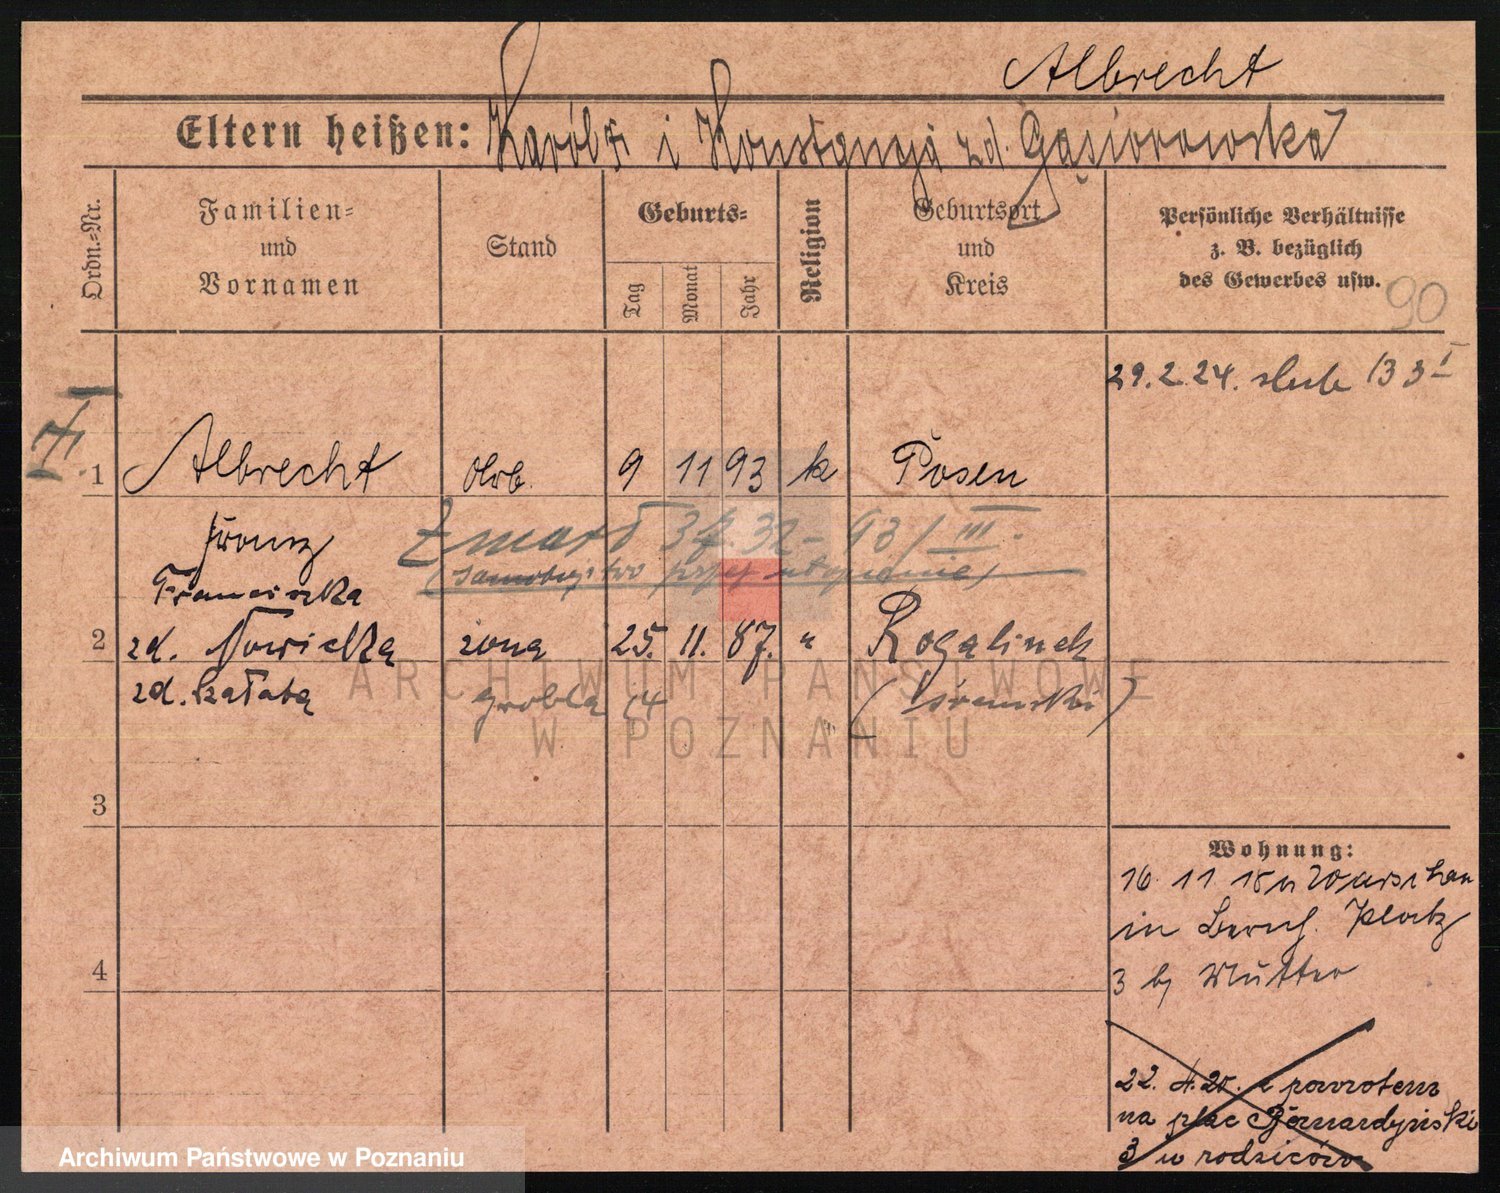 Albrecht
Eltern heißen: Karól † i Konstancja zd. Gąsiorowska
Ordn.-Nr.
Familien- und Vornamen
Stand
Geburts-
Tag
Monat
Jahr
Religion
Geburtsort und Kreis
Persönliche Verhältnisse z. B. bezüglich des Gewerbes usw.
90
29.2.24. slub 133 I
1 Albrecht Arb. 9 11 93 k Posen
Franz
Zmarł 3 7. 32 - 93 / III.
(samobójstwo przez utopienie)
Franciszka
2 zd. Nowicka żona 25. 11. 87. " Rogalinek
zd. Szałata grobla 14 " (śremski)
3
4
Wohnung:
16. 11. 18 v Warschau
in Bernh. Platz
3 by Mutter
22. 4. 20. z powrotem
na plac Bernardyński
3 u rodziców
ARCHIWUM PAŃSTWOWE
W POZNANIU
Archiwum Państwowe w Poznaniu